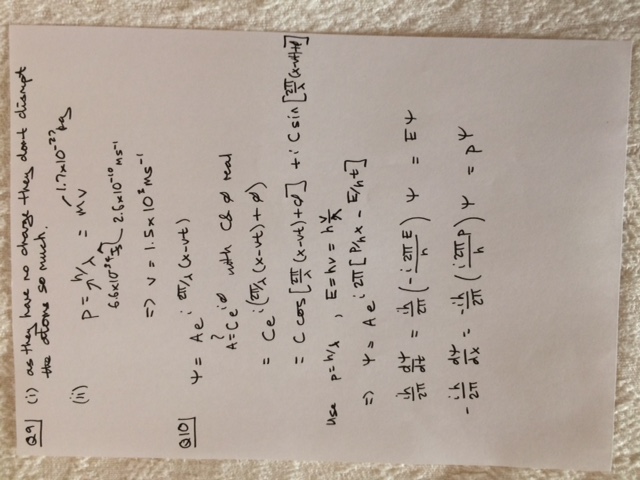 Q9 (i) as they have no charge they don't disrupt
the atoms so much.
(ii) P = h/λ = mv
6.6x10⁻³⁴ Js 2.6x10⁻¹⁰ ms⁻¹ 1.7x10⁻²⁷ kg
=> v = 1.5x10³ ms⁻¹
Q10 Ψ = A e^{i 2π/λ (x-vt)}
A = C e^{iø} with C & ø real
= C e^{i(2π/λ (x-vt) + ø)}
= C cos[2π/λ (x-vt)+ø] + i C sin[2π/λ (x-vt)+ø]
Use p = h/λ, E = hν = h v/λ
=> Ψ = A e^{i 2π [P/h x - E/h t]}
ih/2π dΨ/dt = ih/2π (-i 2πE/h) Ψ = EΨ
-ih/2π dΨ/dx = -ih/2π (i 2πP/h) Ψ = PΨ